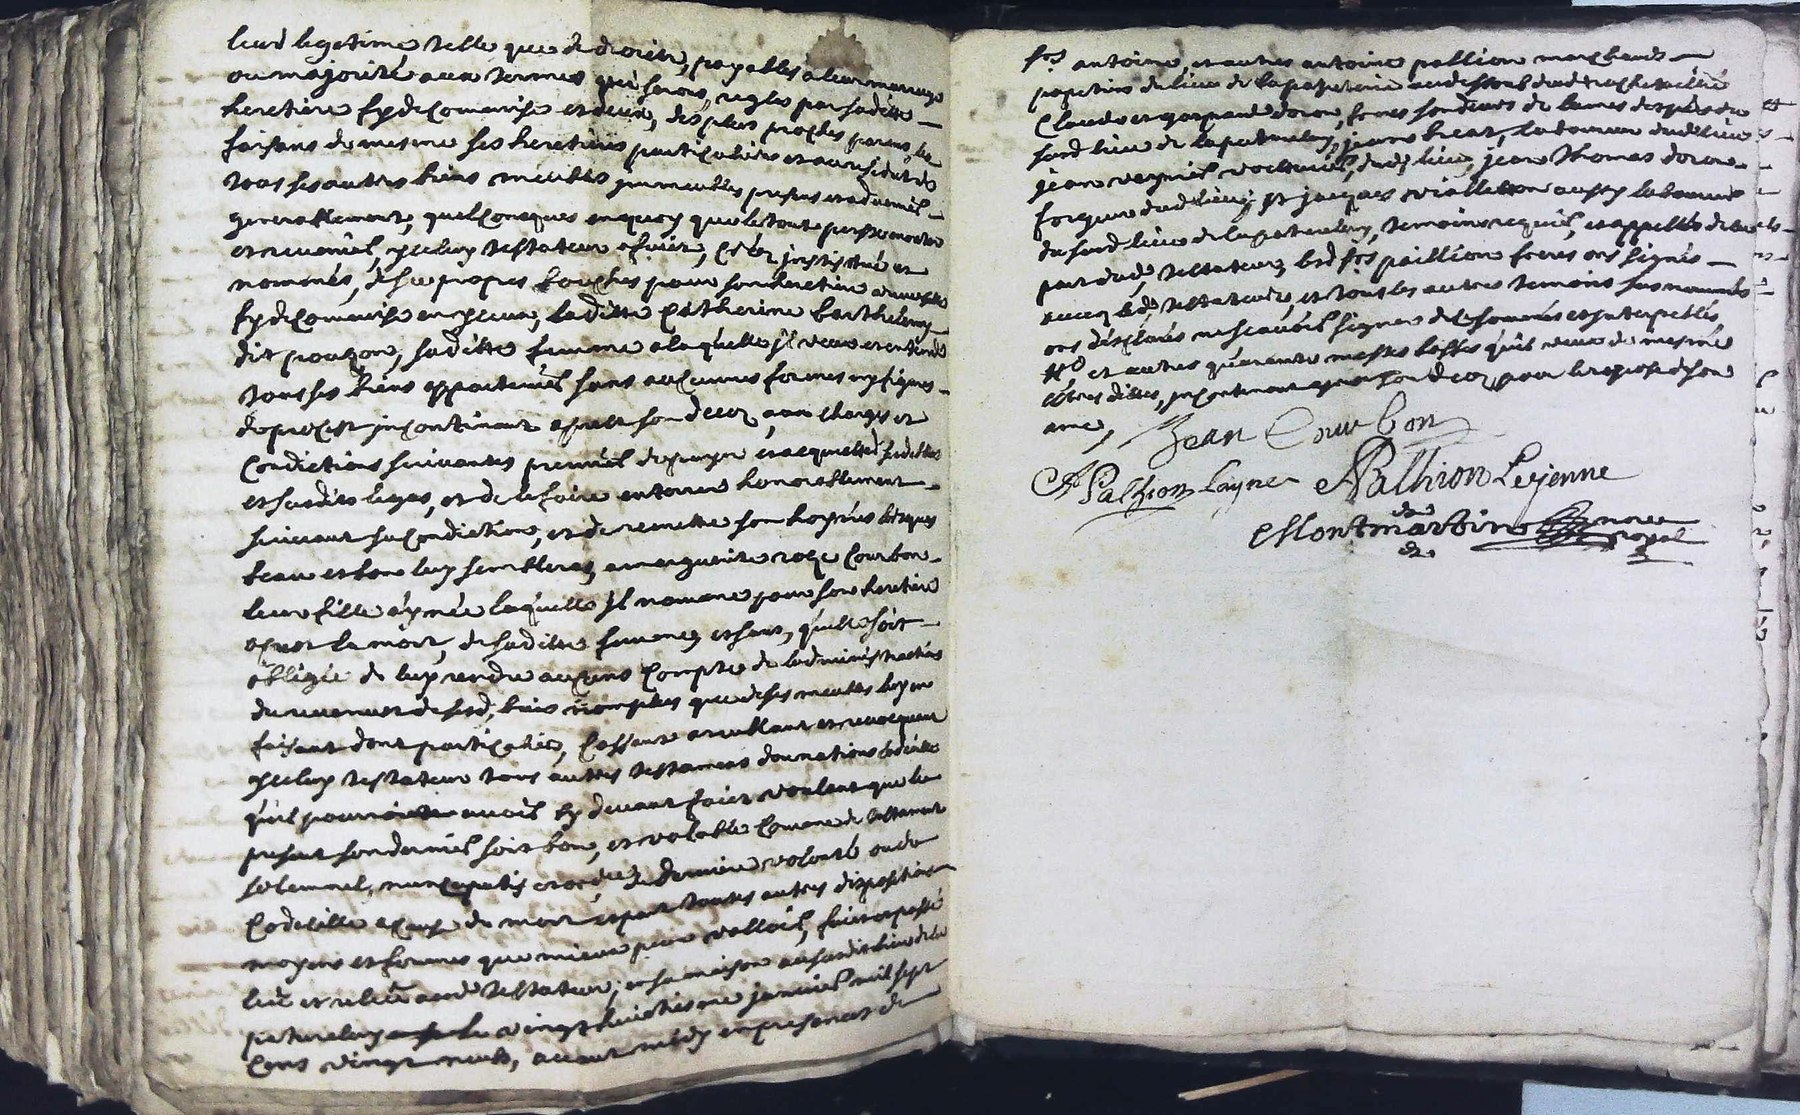 leurd legitime telle que de droict, payables a leur mariage
ou majorité aux termes qui seront regles par sadite
heretiere fydeicommise et deux des plus proches parens, les
faisant de mesme ses heretiers particuliers et au residu de
tous ses autres biens meubles immeubles presens et advenir
generallement quelconques en quoy que le tout puisse monter
et revenir, iceluy testateur a faict, créé institué et
nommé, de sa propre bouche pour son heretiere universelle
fydeicommise en iceux, ladite Catherine Barthelemy
dit pouzon, sadite femme a laquelle il veut et entend
tous ses biens appartenir sans aucunes formes ny figures
de procest incontinant apres son decez, aux charges et
condictions suivantes premier de payer et acquitter sesdites
et susdits legas, et de le faire enterrer honorablement
suivant sa condiction, et de remettre son hoyrie lorsque
beau et bon luy semblera, a marguerite roze Courbon
leur fille aynée laquelle il nomme pour son heretiere
apres la mort de sadite femme, et sans quelle soit
obligée de luy rendre aucuns compte de ladministration
du revenu de sesd. biens non plus que de ses meubles luy en
faisant dont particulier, Cassant annullant et revoquant
iceluy testateur tous autres testamens donnations codicille
quil pourroit avoir cy devant faict voulant que le
present son dernier soit bon, et valable comme de testament
solemnel, nuncupatif et ordce de derniere volonté ou de
Codicille a cause de mort et par toutes autres dispositions
moyens et formes que mieux peux valloir, faict et passé
leu et releu aud testateur, en sa maison au susdit lieu de la
patureluy le vingt huictiesme janvier mil sept
cens vingt neuf, avant midy en presences de
srs antoine, et autres antoine pallion marchands
papetiers du lieu de la papeterie au dessous dud
Claude et gaspard doron, freres fondeurs de lames despées du
susd lieu de la patureluy, jean breat, laboureur dud lieu
jean voyriel voiturier, dud lieu, jean Thomas doron
forgeur dud lieu, et jacques vialleton aussy laboureur
du susd lieu de la patureluy, temoins requis, et appellés
par led. testateur, lesd srs paillion freres ont signés
avec led. testateur, et tous les autres temoins sus nommés
ont déclarés ne scavoir signer de ce sommés et interpellés
# et autres quarante messes basses quil veut de mesme
estres dittes, incontinant apres son decez pour le repos de son
ame,
Jean Courbon
A Palhion Layne A Palhion Lejenne
Montmartin nore
royal